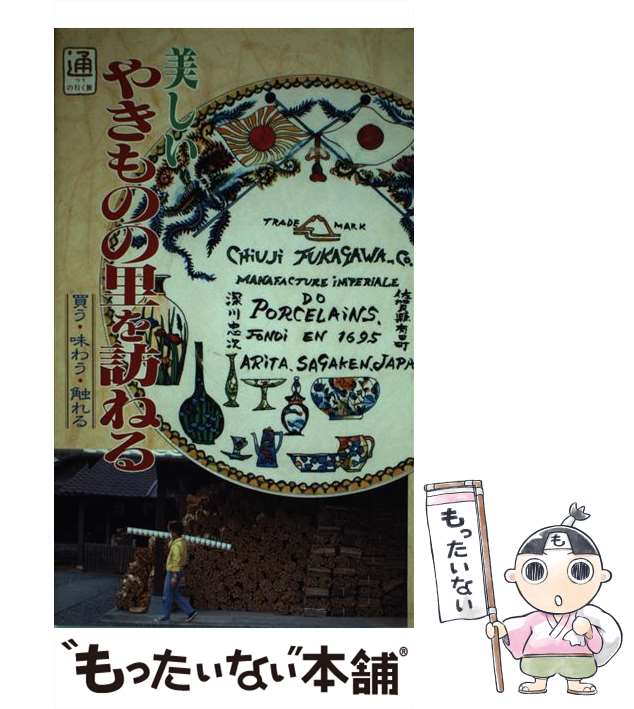 通
つう
の行く旅
美しい
やきものの里を訪ねる
買う・味わう・触れる
TRADE MARK
CHIUJI FUKAGAWA. Co.
MANAFACTURE IMPERIALE
DO
PORCELAINS.
FONDI EN 1695
ARITA. SAGAKEN. JAPA
深川忠次
佐賀縣有田町
“もったいない”本舗®
もったいない
も